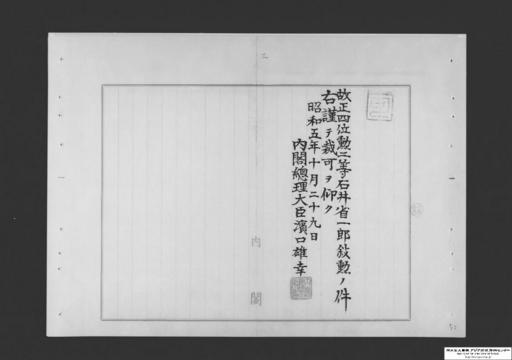 故正四位勲三等石井省一郎敍勲ノ件
右謹テ裁可ヲ仰ク
昭和五年十月二十九日
内閣總理大臣濱口雄幸
内閣